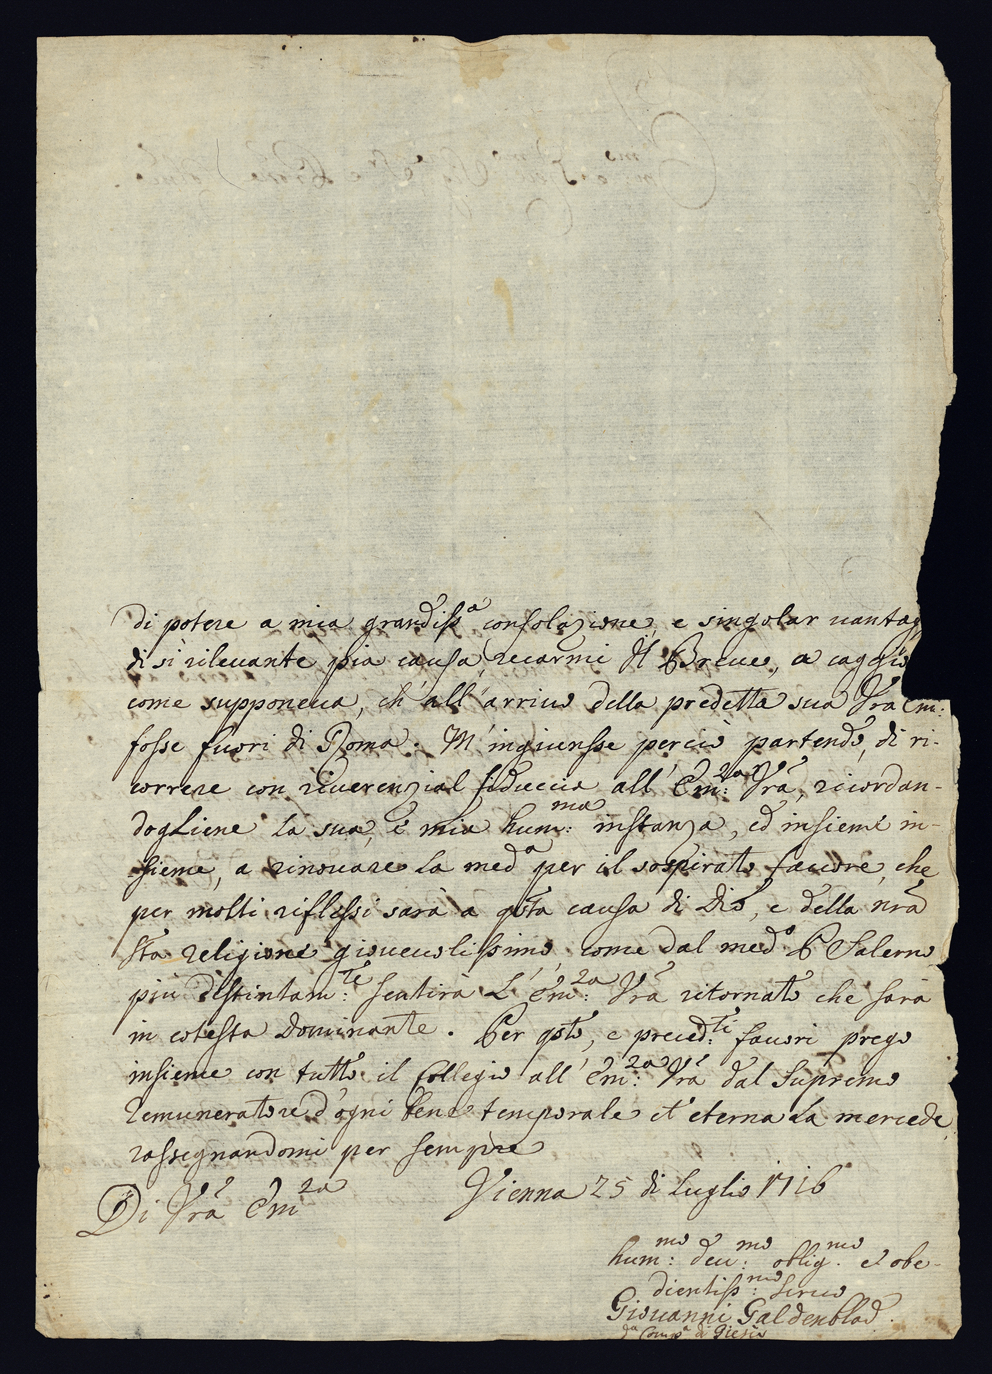 di potere a mia grandiss.a consolazione, e singolar vantag
di sì rilevante pia causa, recarmi Il Breve, a caggio
come supponeva, ch'all'arrivo della predetta sua Vra Em:
fosse fuori di Roma. M'ingiunse perciò partendo, di ri-
correre con riverenzial fiduccia all'Em:za Vra, ricordan-
dogliene la sua, e mia hum:ma instanza, ed insieme in-
sieme, a rinovare la med.a per il sospirato favore, che
per molti riflessi sarà a qsta causa di Dio, e della nra
sta religione giovevolissimo, come dal med.o P Salerno
più distintam:te sentirà L'Em:za Vra ritornato che sarà
in cotesta Dominante. Per qsto, e preced:ti favori prego
insieme con tutto il Collegio all'Em:za Vra dal Supremo
Remuneratore d'ogni bene temporale et eterna La mercede,
rassegnandomi per sempre
Di Vra Em.za Vienna 25 di Luglio 1716
hum:mo dev:mo oblig.mo et obe-
dientiss:mo servo
Giovanni Galdenblad.
d.a Comp.a di Giesù